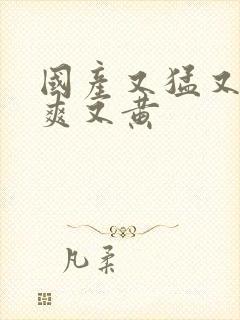 國產又猛又
爽又黄
凡柔